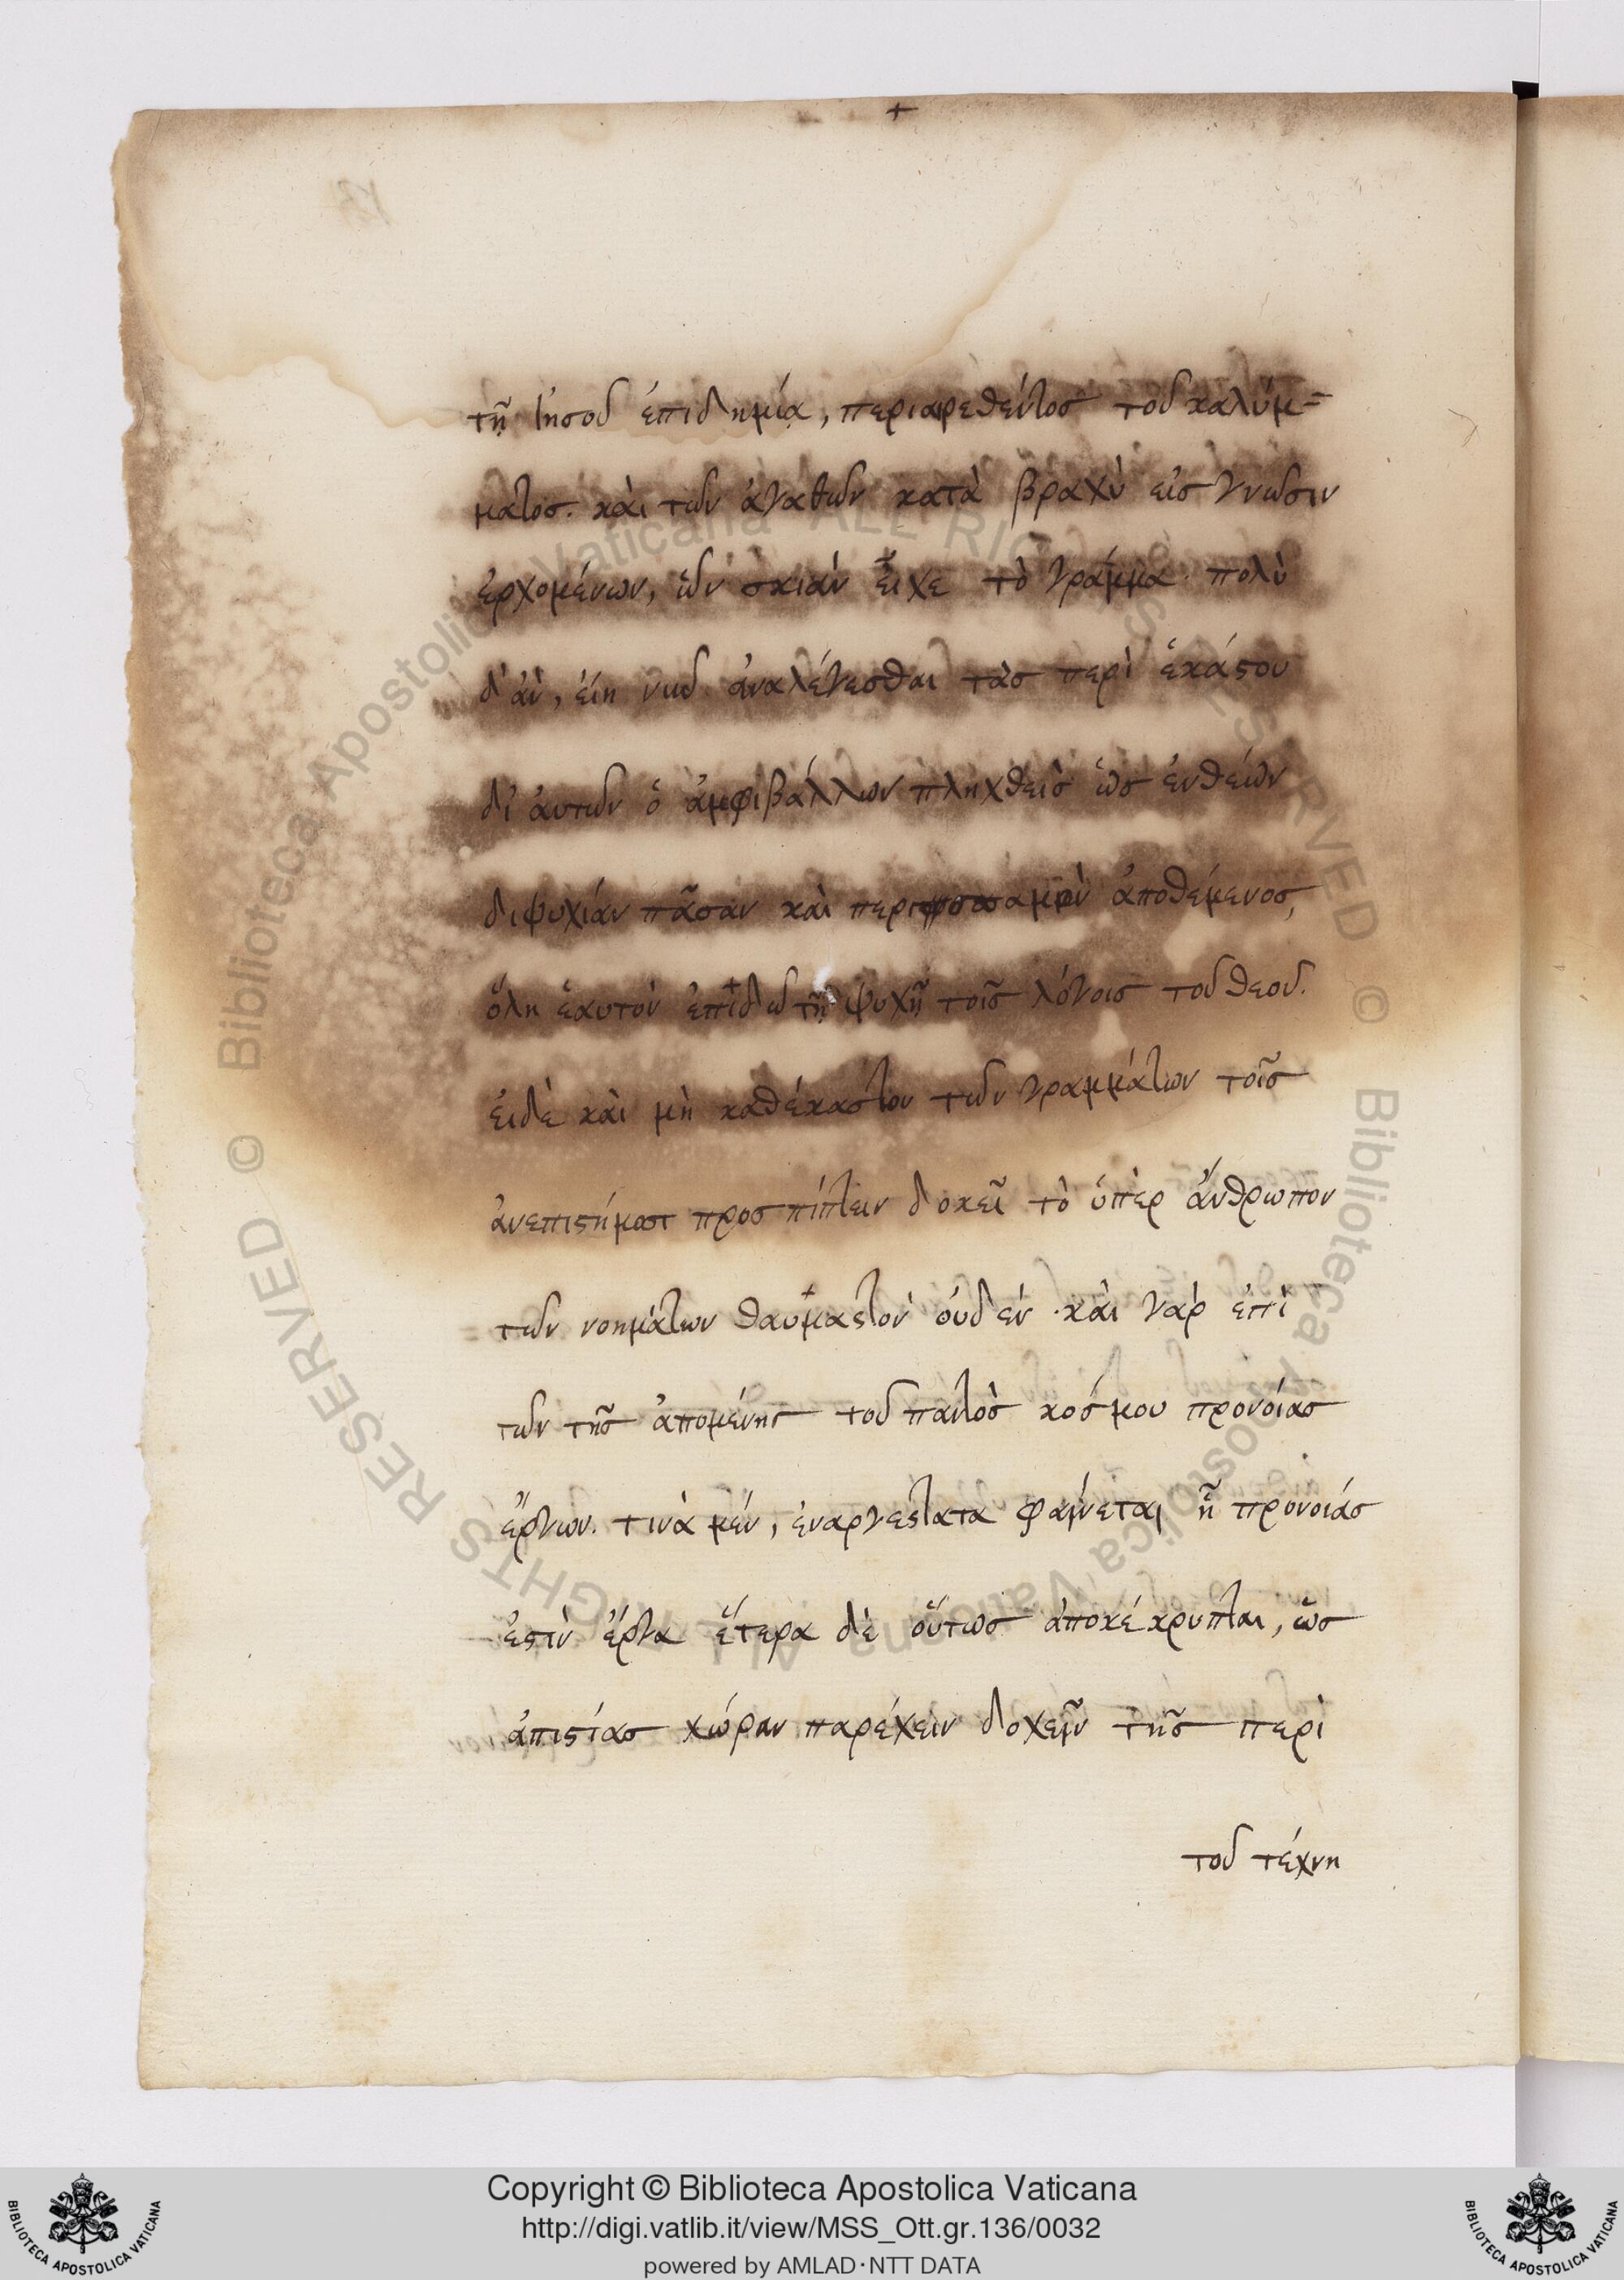 τῆ Ἰησοῦ ἐπιδημίᾳ, περιαιρεθέντος τοῦ καλύμ=
ματος. καὶ τῶν ἀγαθῶν κατὰ βραχὺ εἰς γνῶσιν
ἐρχομένων, ὧν σκιὰν εἶχε τὸ γράμμα. πολὺ
δ' ἂν, εἴη νῦν ἀναλέγεσθαι τὰς περὶ ἑκάστου
δι' αὐτῶν ὁ ἀμφιβάλλων πληχθεὶς ὡς ἐνθείων
διψυχίαν πᾶσαν καὶ ἀποθέμενος,
ὅλη ἑαυτὸν ἐπιδῶ τῇ ψυχῇ τοῖς λόγοις τοῦ θεοῦ.
εἰδὲ καὶ μὴ καθέκαστον τῶν γραμμάτων τοῖς
ἀνεπιστήμοσι προσπίπτειν δοκεῖ τὸ ὑπὲρ ἄνθρωπον
τῶν νοημάτων θαυμαστὸν οὐδὲν. καὶ γὰρ ἐπὶ
τῶν τῆς ἁπομένης τοῦ παντὸς κόσμου προνοίας
ἔργων. τινὰ μὲν, ἐναργέστατα φαίνεται ἧ προνοίας
ἐστὶν ἔργα ἕτερα δὲ οὕτως ἀποκέκρυπται, ὡς
ἀπιστίας χώραν παρέχειν δοκεῖν τῆς περὶ
τοῦ τέχνη
Copyright © Biblioteca Apostolica Vaticana
http://digi.vatlib.it/view/MSS_Ott.gr.136/0032
powered by AMLAD·NTT DATA
BIBLIOTECA APOSTOLICA VATICANA
BIBLIOTECA APOSTOLICA VATICANA
© Biblioteca Apostolica Vaticana ALL RIGHTS RESERVED
© Biblioteca Apostolica Vaticana ALL RIGHTS RESERVED